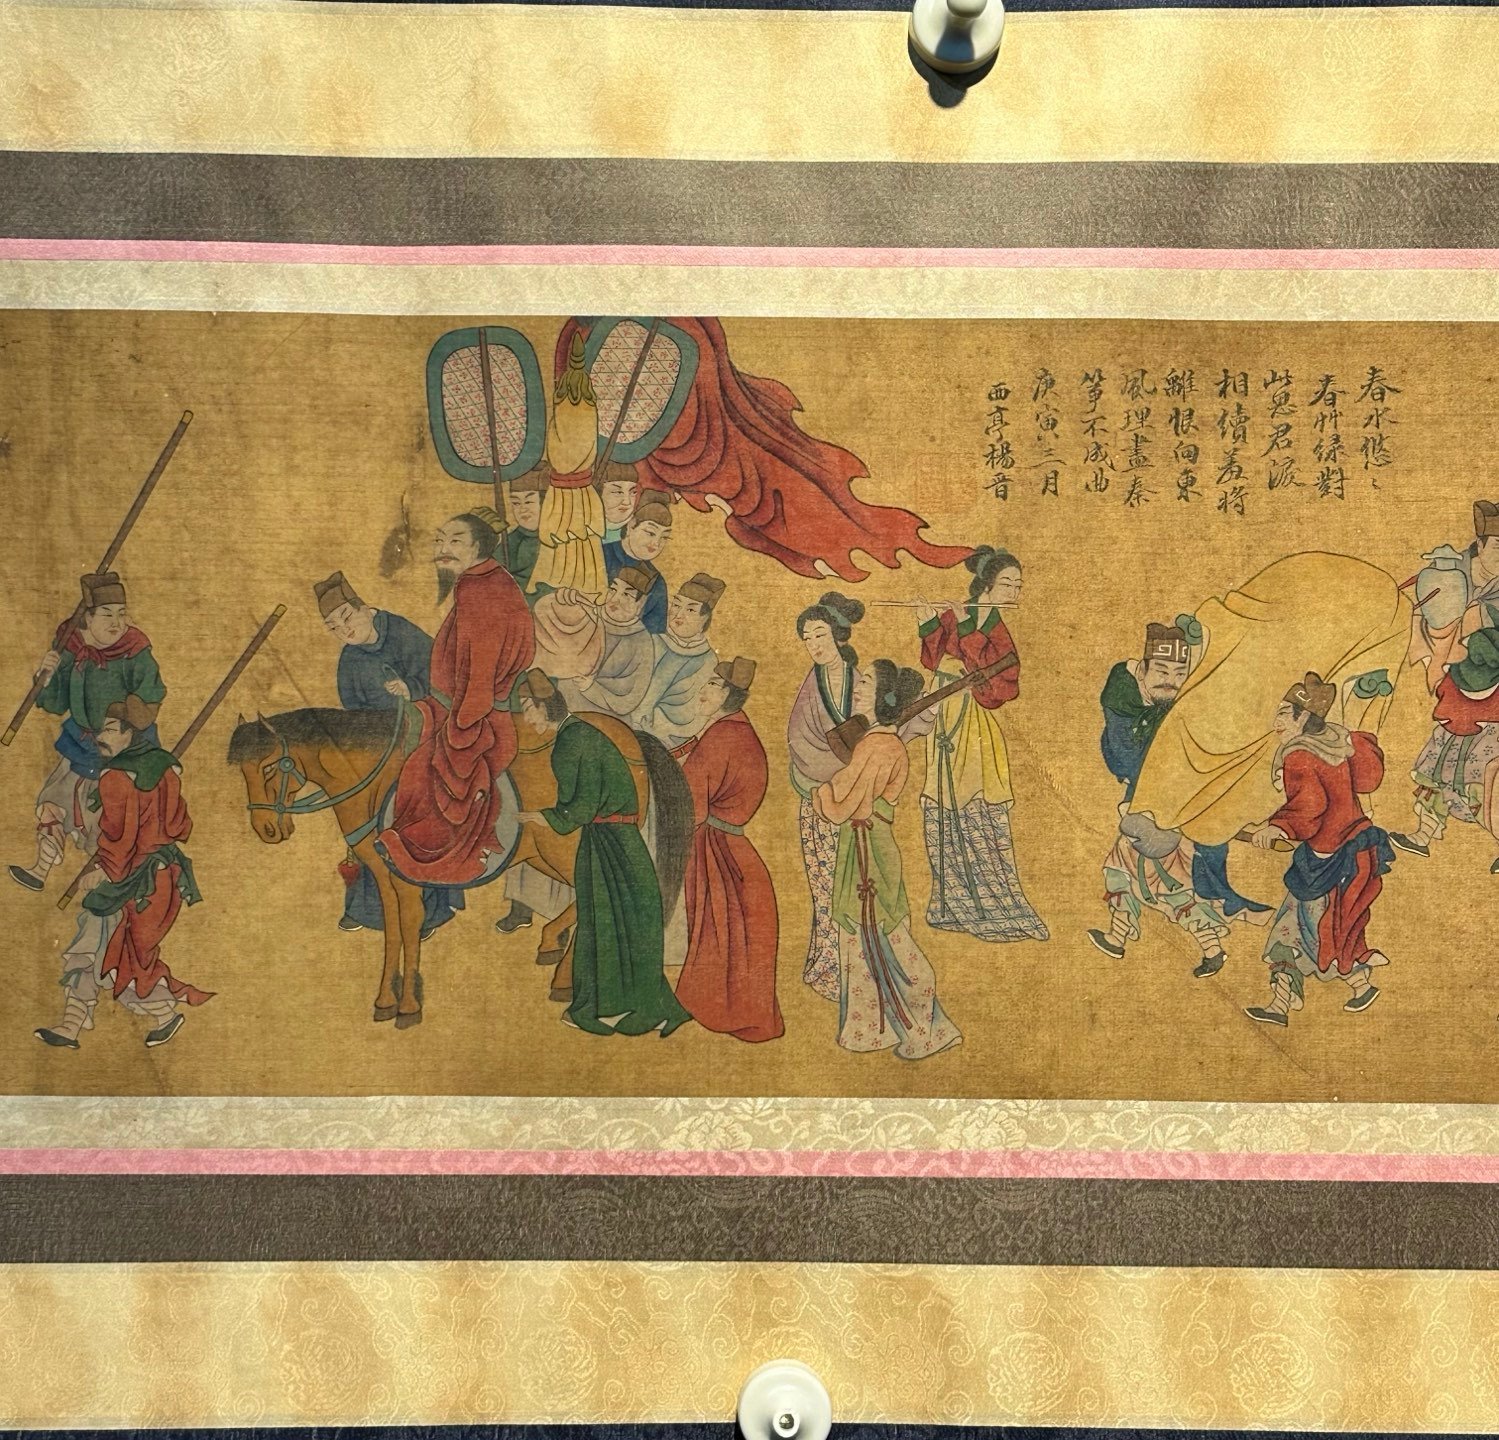 春水悠〻
春艸緑對
此思君淚
相續羞將
離恨向東
風理盡秦
箏不成曲
庚寅三月
西亭楊晉